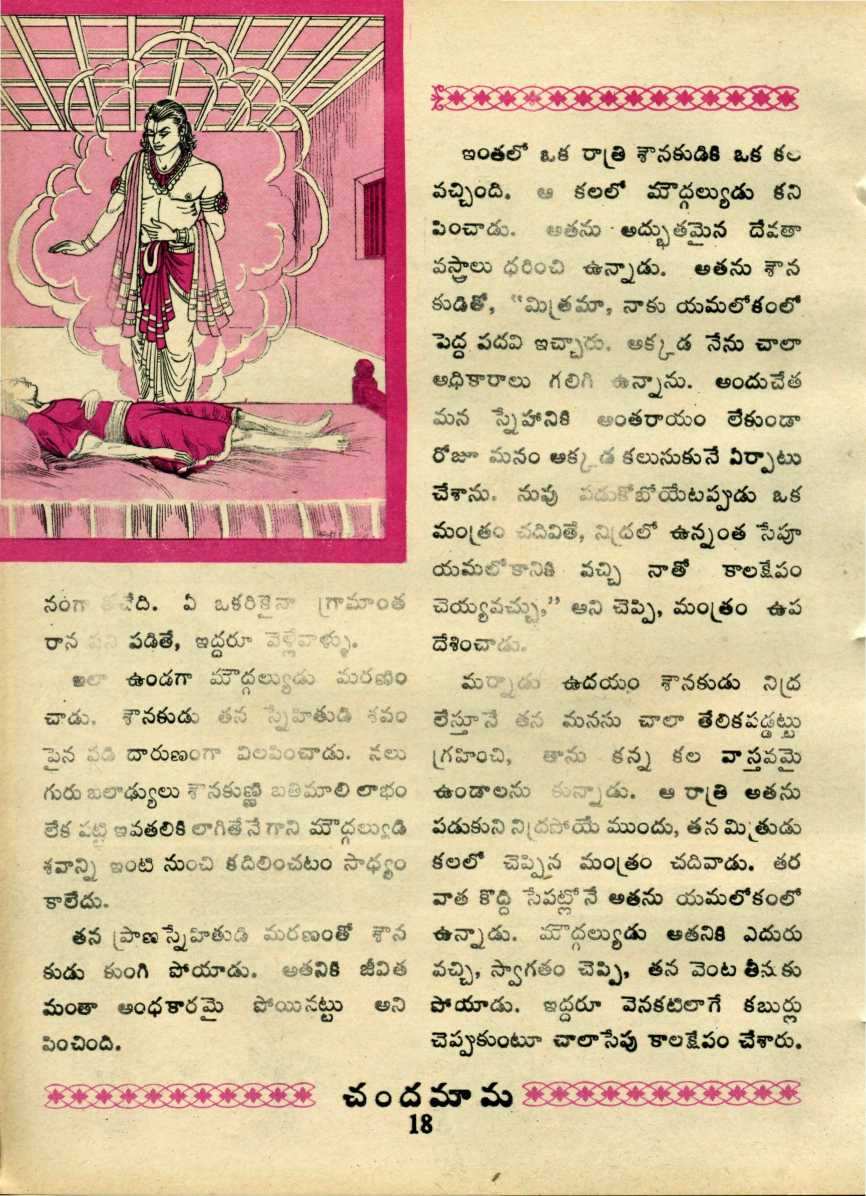 నంగా ఉండేది. ఏ ఒకరికైనా గ్రామాంత
రాన పని పడితే, ఇద్దరూ వెళ్లేవాళ్ళు.
ఇలా ఉండగా మౌద్గల్యుడు మరణిం
చాడు. శౌనకుడు తన స్నేహితుడి శవం
పైన పడి దారుణంగా విలపించాడు. నలు
గురు బలాఢ్యులు శౌనకుణ్ణి బతిమాలి లాభం
లేక పట్టి ఇవతలికి లాగితేనేగాని మౌద్గల్యుడి
శవాన్ని ఇంటి నుంచి కదిలించటం సాధ్యం
కాలేదు.
తన ప్రాణస్నేహితుడి మరణంతో శౌన
కుడు కుంగి పోయాడు. అతనికి జీవిత
మంతా అంధకారమై పోయినట్టు అని
పించింది.
ఇంతలో ఒక రాత్రి శౌనకుడికి ఒక కల
వచ్చింది. ఆ కలలో మౌద్గల్యుడు కని
పించాడు. అతను అద్భుతమైన దేవతా
వస్త్రాలు ధరించి ఉన్నాడు. అతను శౌన
కుడితో, “మిత్రమా, నాకు యమలోకంలో
పెద్ద పదవి ఇచ్చారు. అక్కడ నేను చాలా
అధికారాలు గలిగి ఉన్నాను. అందుచేత
మన స్నేహానికి అంతరాయం లేకుండా
రోజూ మనం అక్కడ కలుసుకునే ఏర్పాటు
చేశాను. నువు పడుకోబోయేటప్పుడు ఒక
మంత్రం చదివితే, నిద్రలో ఉన్నంత సేపూ
యమలోకానికి వచ్చి నాతో కాలక్షేపం
చెయ్యవచ్చు,” అని చెప్పి, మంత్రం ఉప
దేశించాడు.
మర్నాడు ఉదయం శౌనకుడు నిద్ర
లేస్తూనే తన మనసు చాలా తేలికపడ్డట్టు
గ్రహించి, తాను కన్న కల వాస్తవమై
ఉండాలను కున్నాడు. ఆ రాత్రి అతను
పడుకుని నిద్రపోయే ముందు, తన మిత్రుడు
కలలో చెప్పిన మంత్రం చదివాడు. తర
వాత కొద్ది సేపట్లోనే అతను యమలోకంలో
ఉన్నాడు. మౌద్గల్యుడు అతనికి ఎదురు
వచ్చి, స్వాగతం చెప్పి, తన వెంట తీసుకు
పోయాడు. ఇద్దరూ వెనకటిలాగే కబుర్లు
చెప్పుకుంటూ చాలాసేపు కాలక్షేపం చేశారు.
చందమామ
18